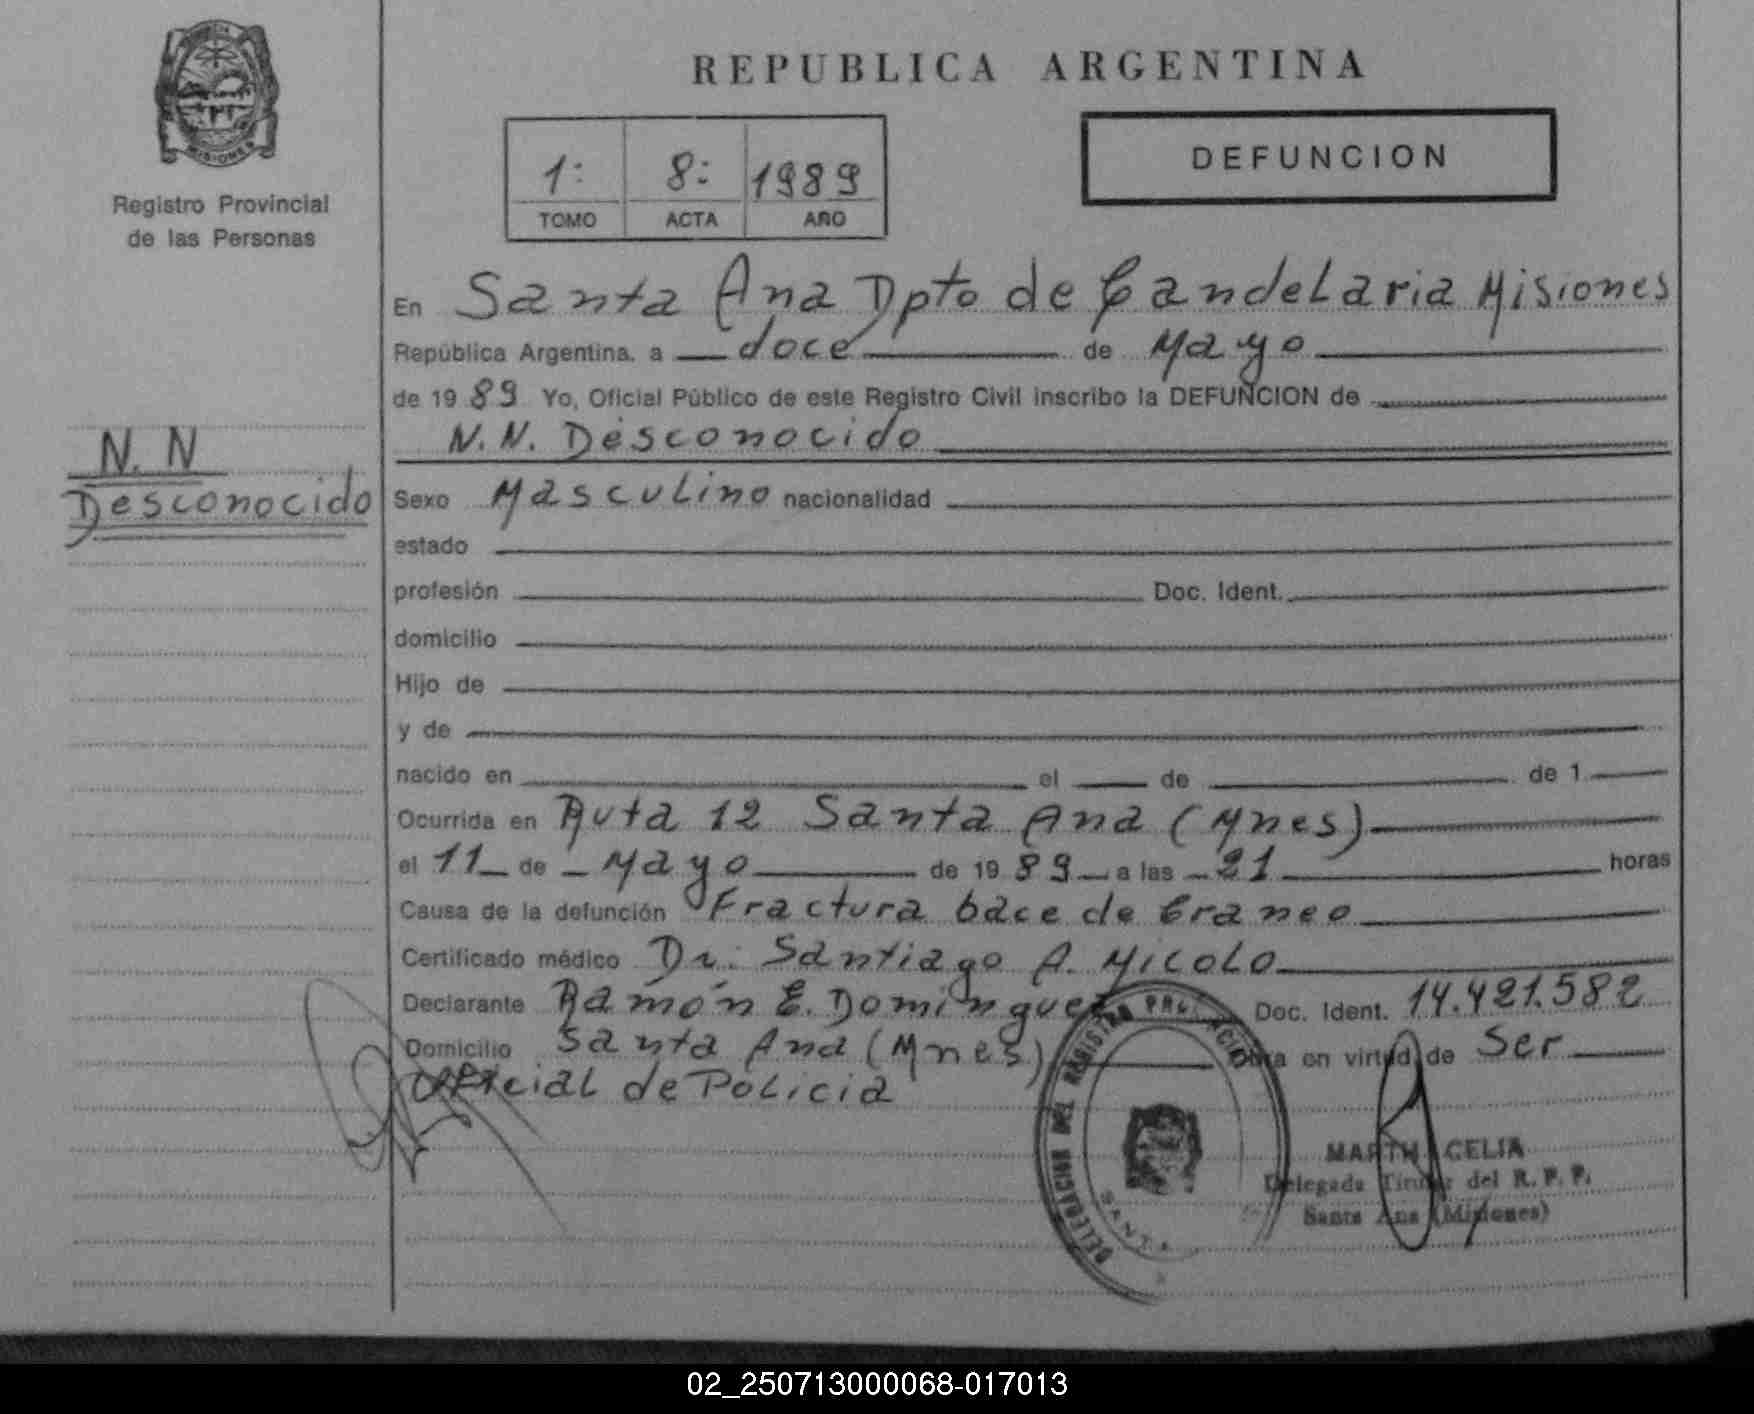 MISIONES
Registro Provincial
de las Personas
REPUBLICA ARGENTINA
1: 8: 1989
TOMO ACTA AÑO
DEFUNCION
En Santa Ana Dpto de Candelaria Misiones
República Argentina, a doce de Mayo
de 19 89 Yo, Oficial Público de este Registro Civil inscribo la DEFUNCION de
N.N. Desconocido
N. N
Desconocido
Sexo Masculino nacionalidad
estado
profesión Doc. Ident.
domicilio
Hijo de
y de
nacido en el de de 1
Ocurrida en Ruta 12 Santa Ana (Mnes)
el 11 de Mayo de 19 89 a las 21 horas
Causa de la defunción Fractura bace de Craneo
Certificado médico Dr. Santiago A. Micolo
Declarante Ramón E. Dominguez Doc. Ident. 14.421.582
Domicilio Santa Ana (Mnes) Obra en virtud de Ser
Oficial de Policia
DELEGACION DEL REGISTRO
SANTA
MARTHA CELIA
Delegada Titular del R. P. P.
Santa Ana (Misiones)
02_250713000068-017013